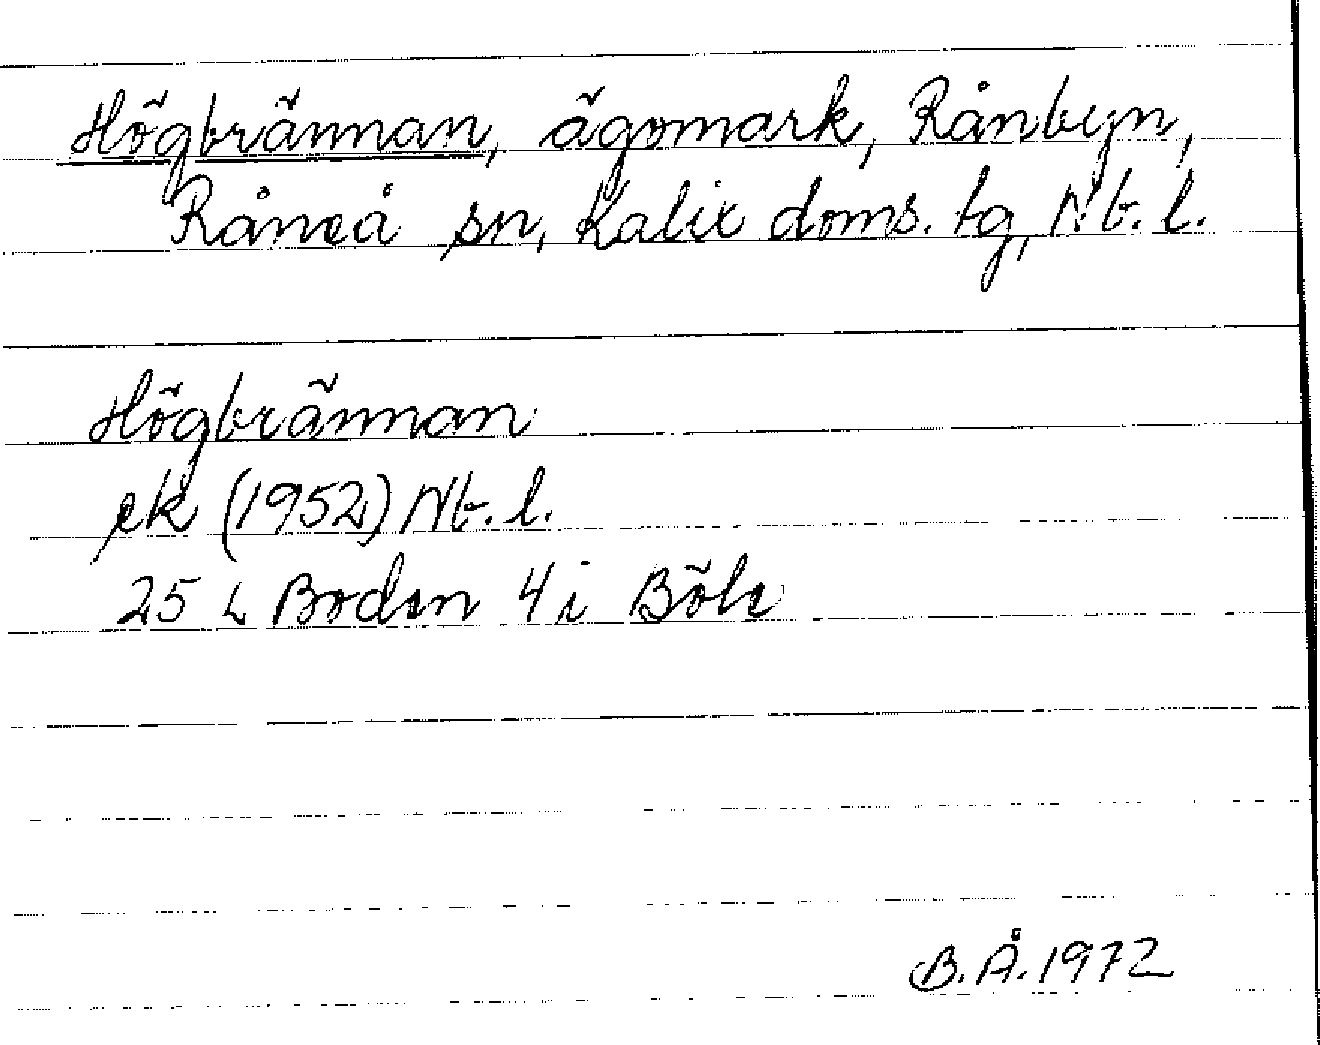 Högbrännan, ägomark, Rånbyn,
Råneå sn, Kalix doms. tg, Nb. l.
Högbrännan
ek (1952) Nb. l.
25 L Boden 4 i Böle
B.Å. 1972